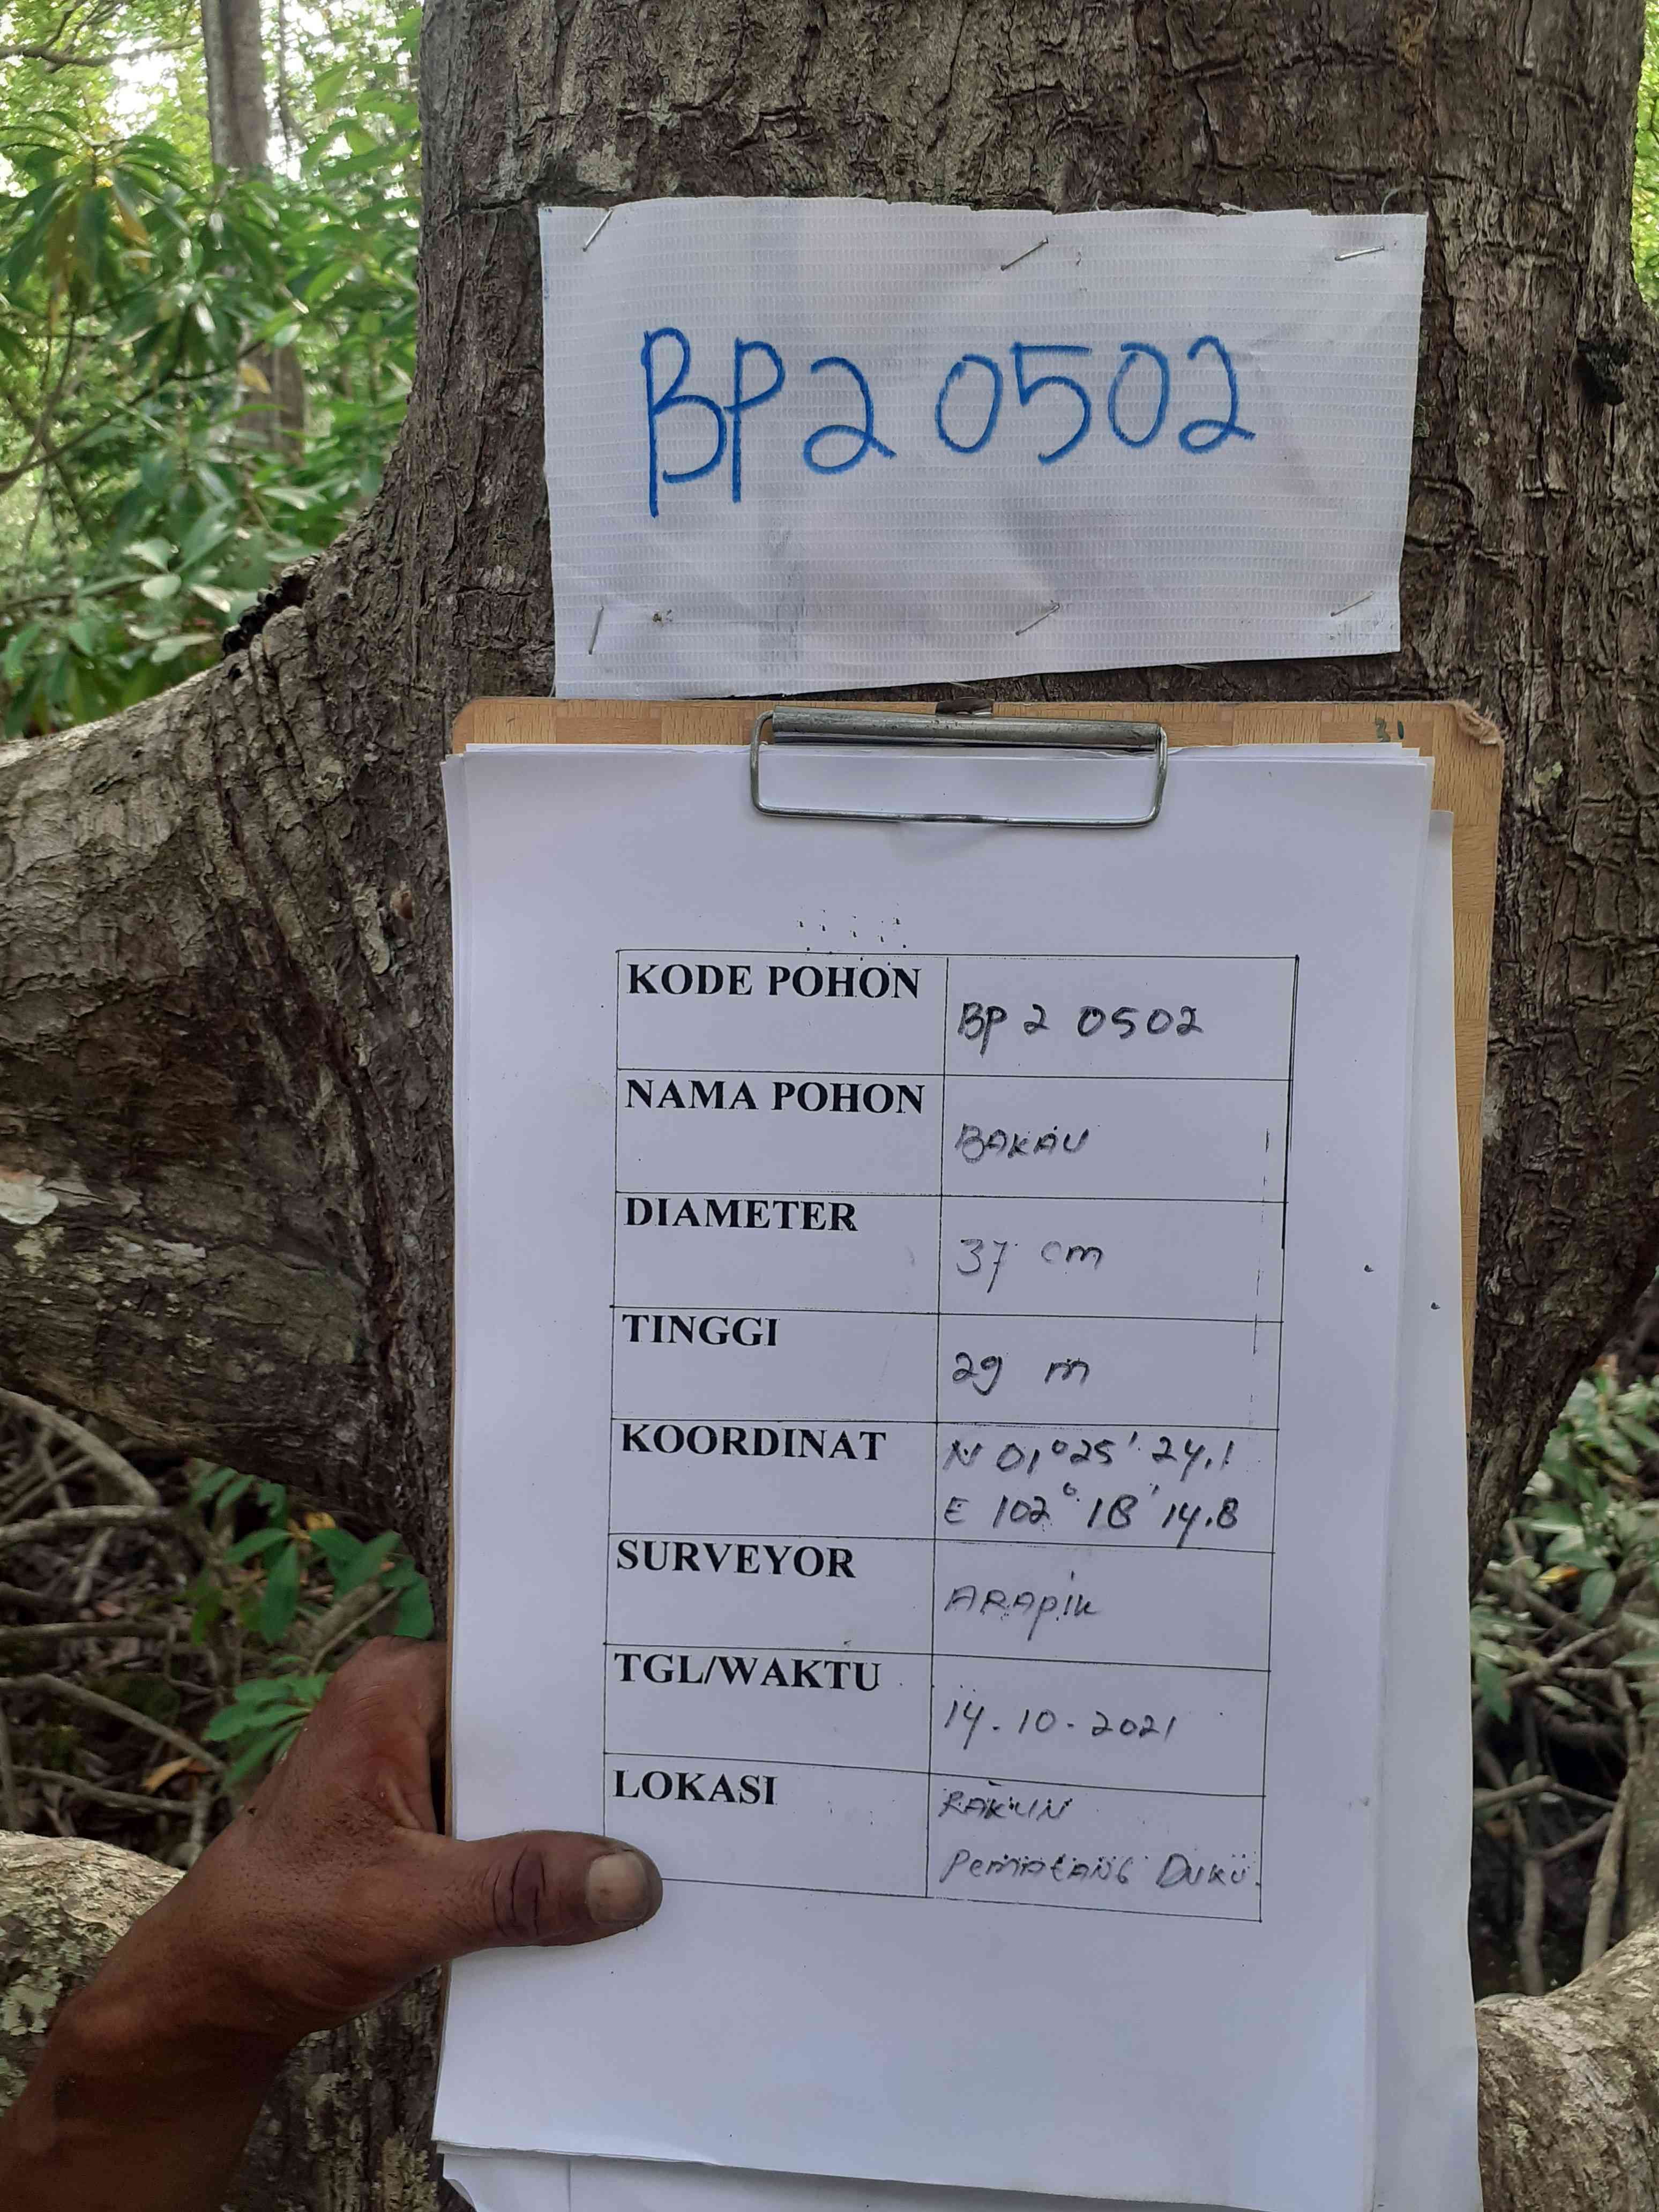 BP2 0502
KODE POHON
BP 2 0502
NAMA POHON
BAKAU
DIAMETER
37 cm
TINGGI
29 m
KOORDINAT
N 01,°25' 24.1
E 102° 18' 14.8
SURVEYOR
ARAPIK
TGL/WAKTU
14.10.2021
LOKASI
RAKUN
PEMATANG DUKU.